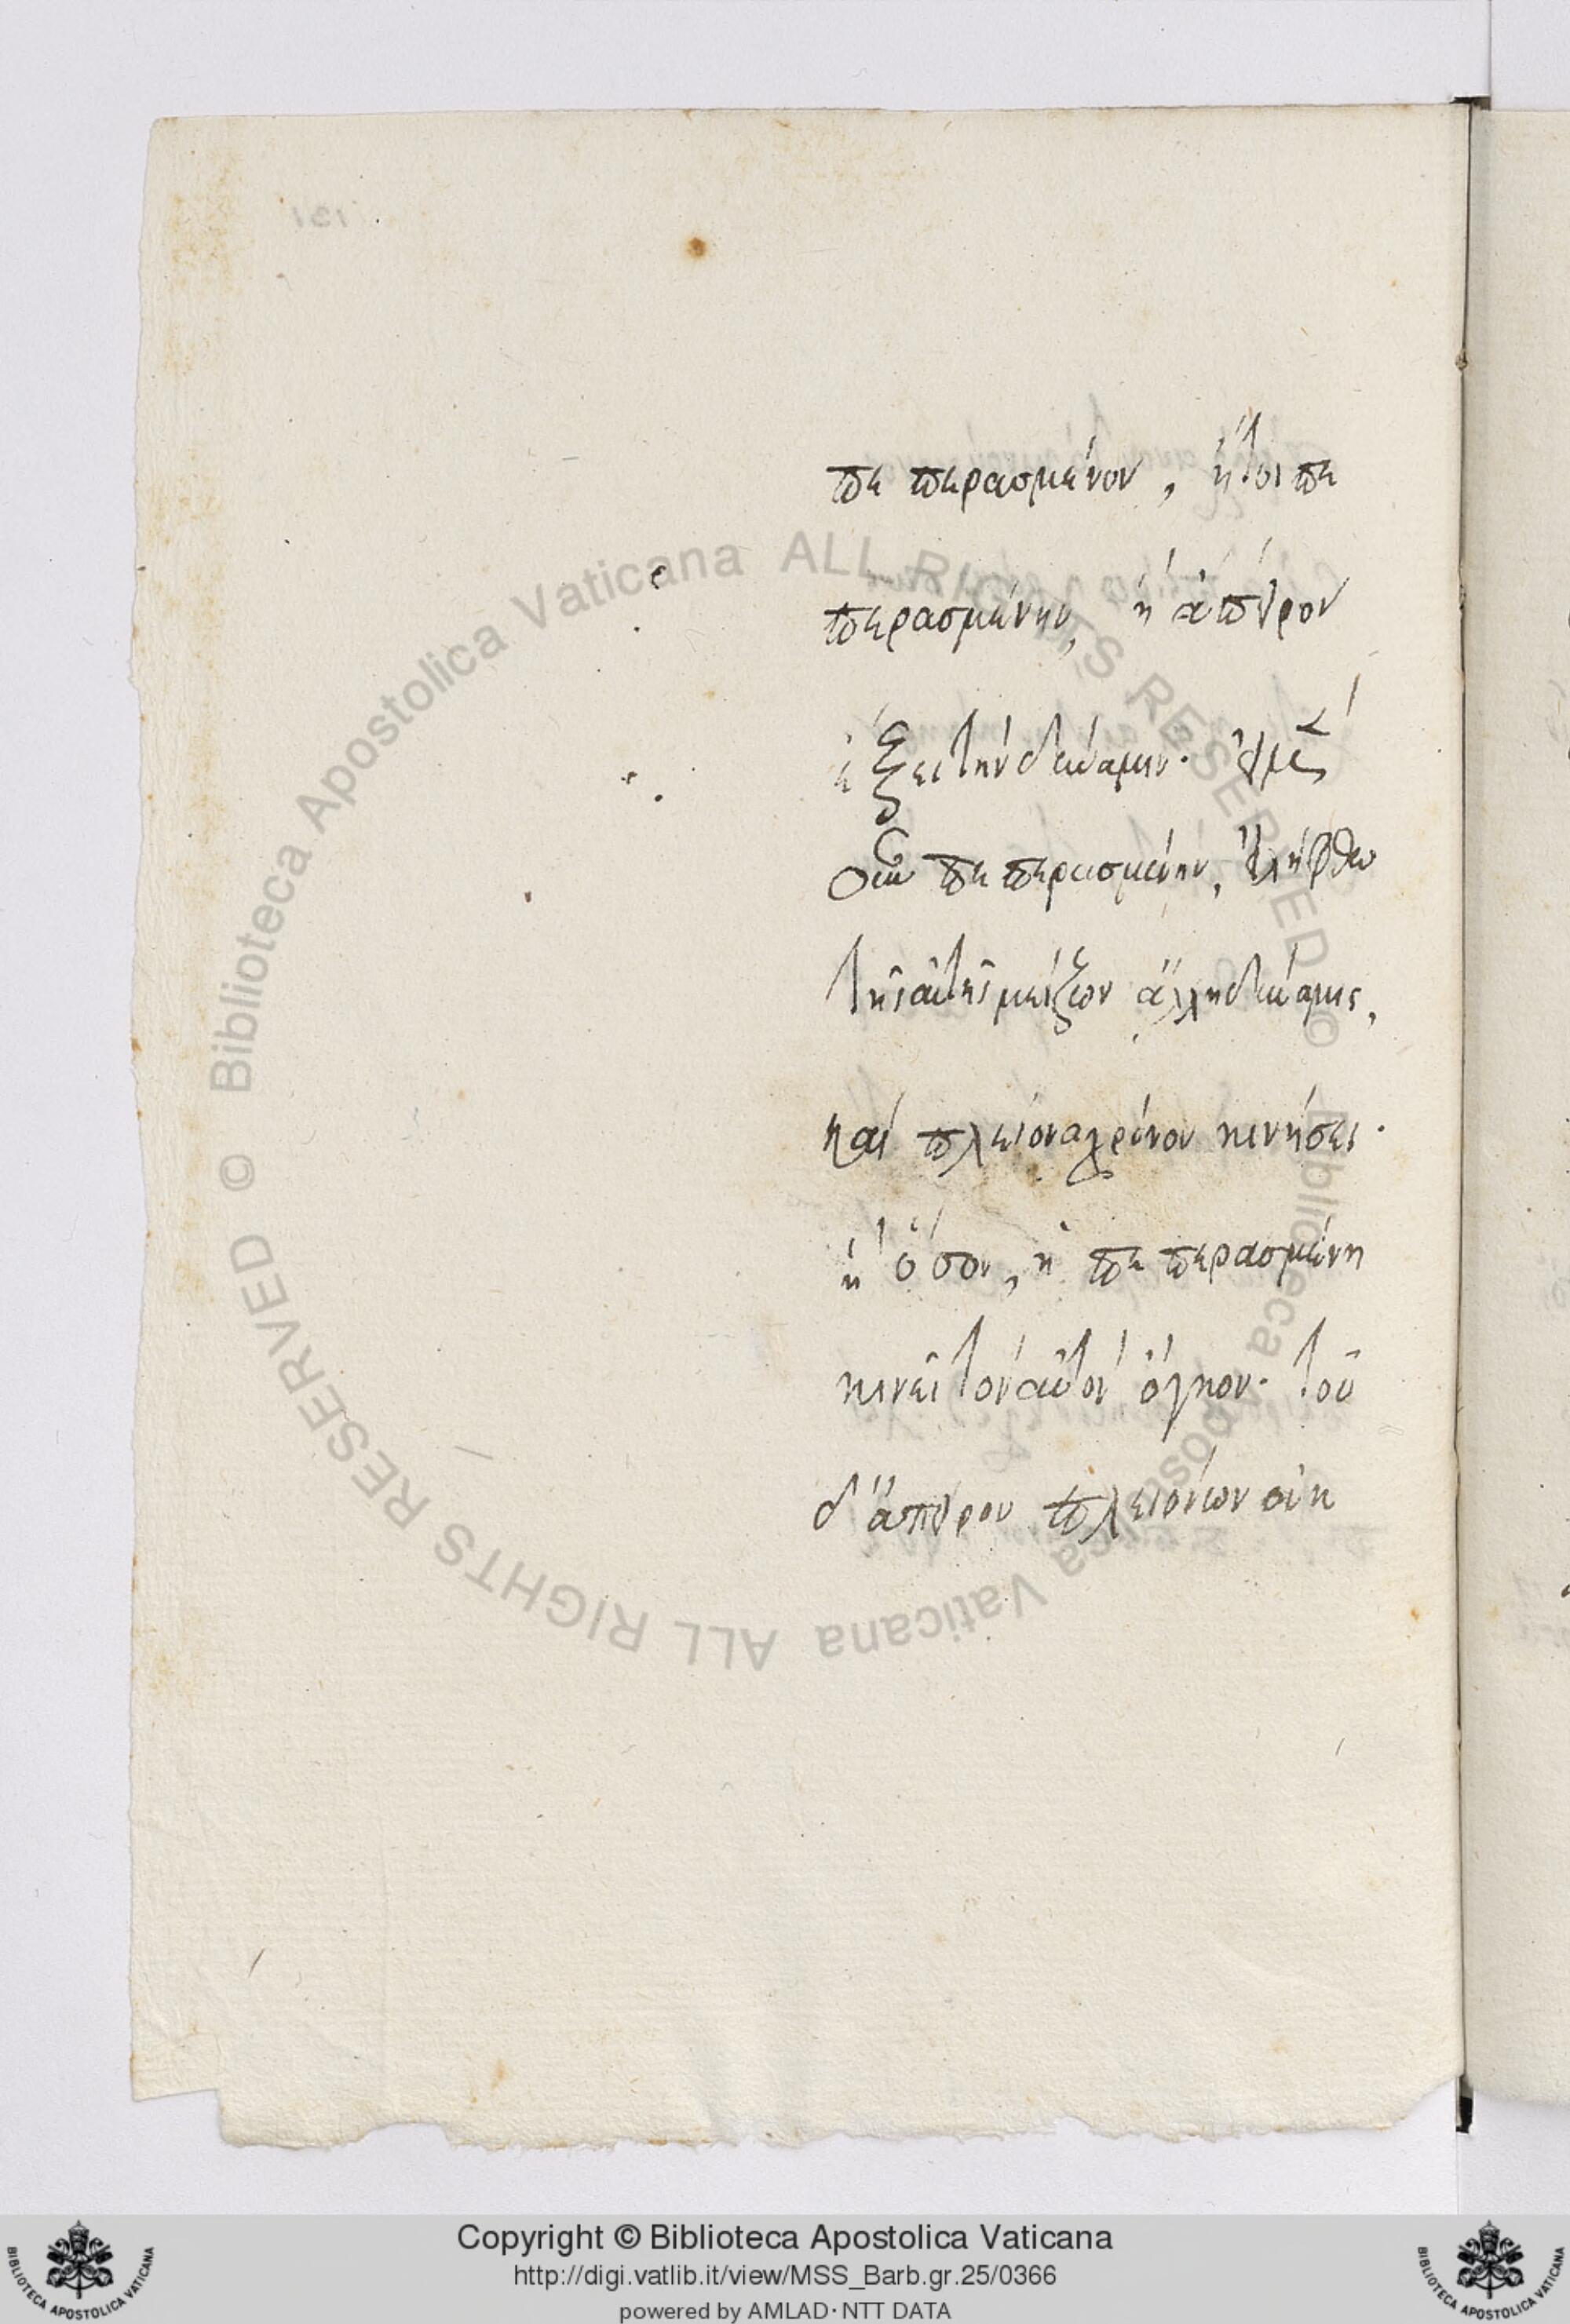 πεπερασμένον, ἤτοι πε
περασμένην, ἢ ἄπειρον
ἕξει τὴν δύναμιν. εἰ μὲν
οὖν πεπερασμένην, εἰλήφθω
τῆς αὐτῆς μείζων ἄλλη δύναμις,
καὶ πλείονα χρόνον κινήσει.
ἢ ὅσον, ἡ πεπερασμένη
κινεῖ τὸν αὐτὸν ὄγκον. τοῦ
δ' ἀπείρου πλείονων οὐκ
Biblioteca Apostolica Vaticana ALL RIGHTS RESERVED ©
Biblioteca Apostolica Vaticana ALL RIGHTS RESERVED ©
Copyright © Biblioteca Apostolica Vaticana
http://digi.vatlib.it/view/MSS_Barb.gr.25/0366
powered by AMLAD·NTT DATA
BIBLIOTECA APOSTOLICA VATICANA
BIBLIOTECA APOSTOLICA VATICANA